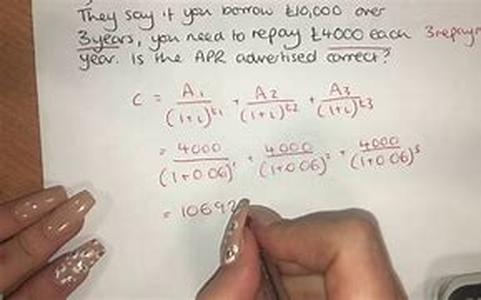 They say if you borrow £10,000 over
3years, you need to repay £4000 each 3repaym
year. Is the APR advertised correct?
C = A1/(1+i)^t1 + A2/(1+i)^t2 + A3/(1+i)^t3
= 4000/(1+0.06)^1 + 4000/(1+0.06)^2 + 4000/(1+0.06)^3
= 10692